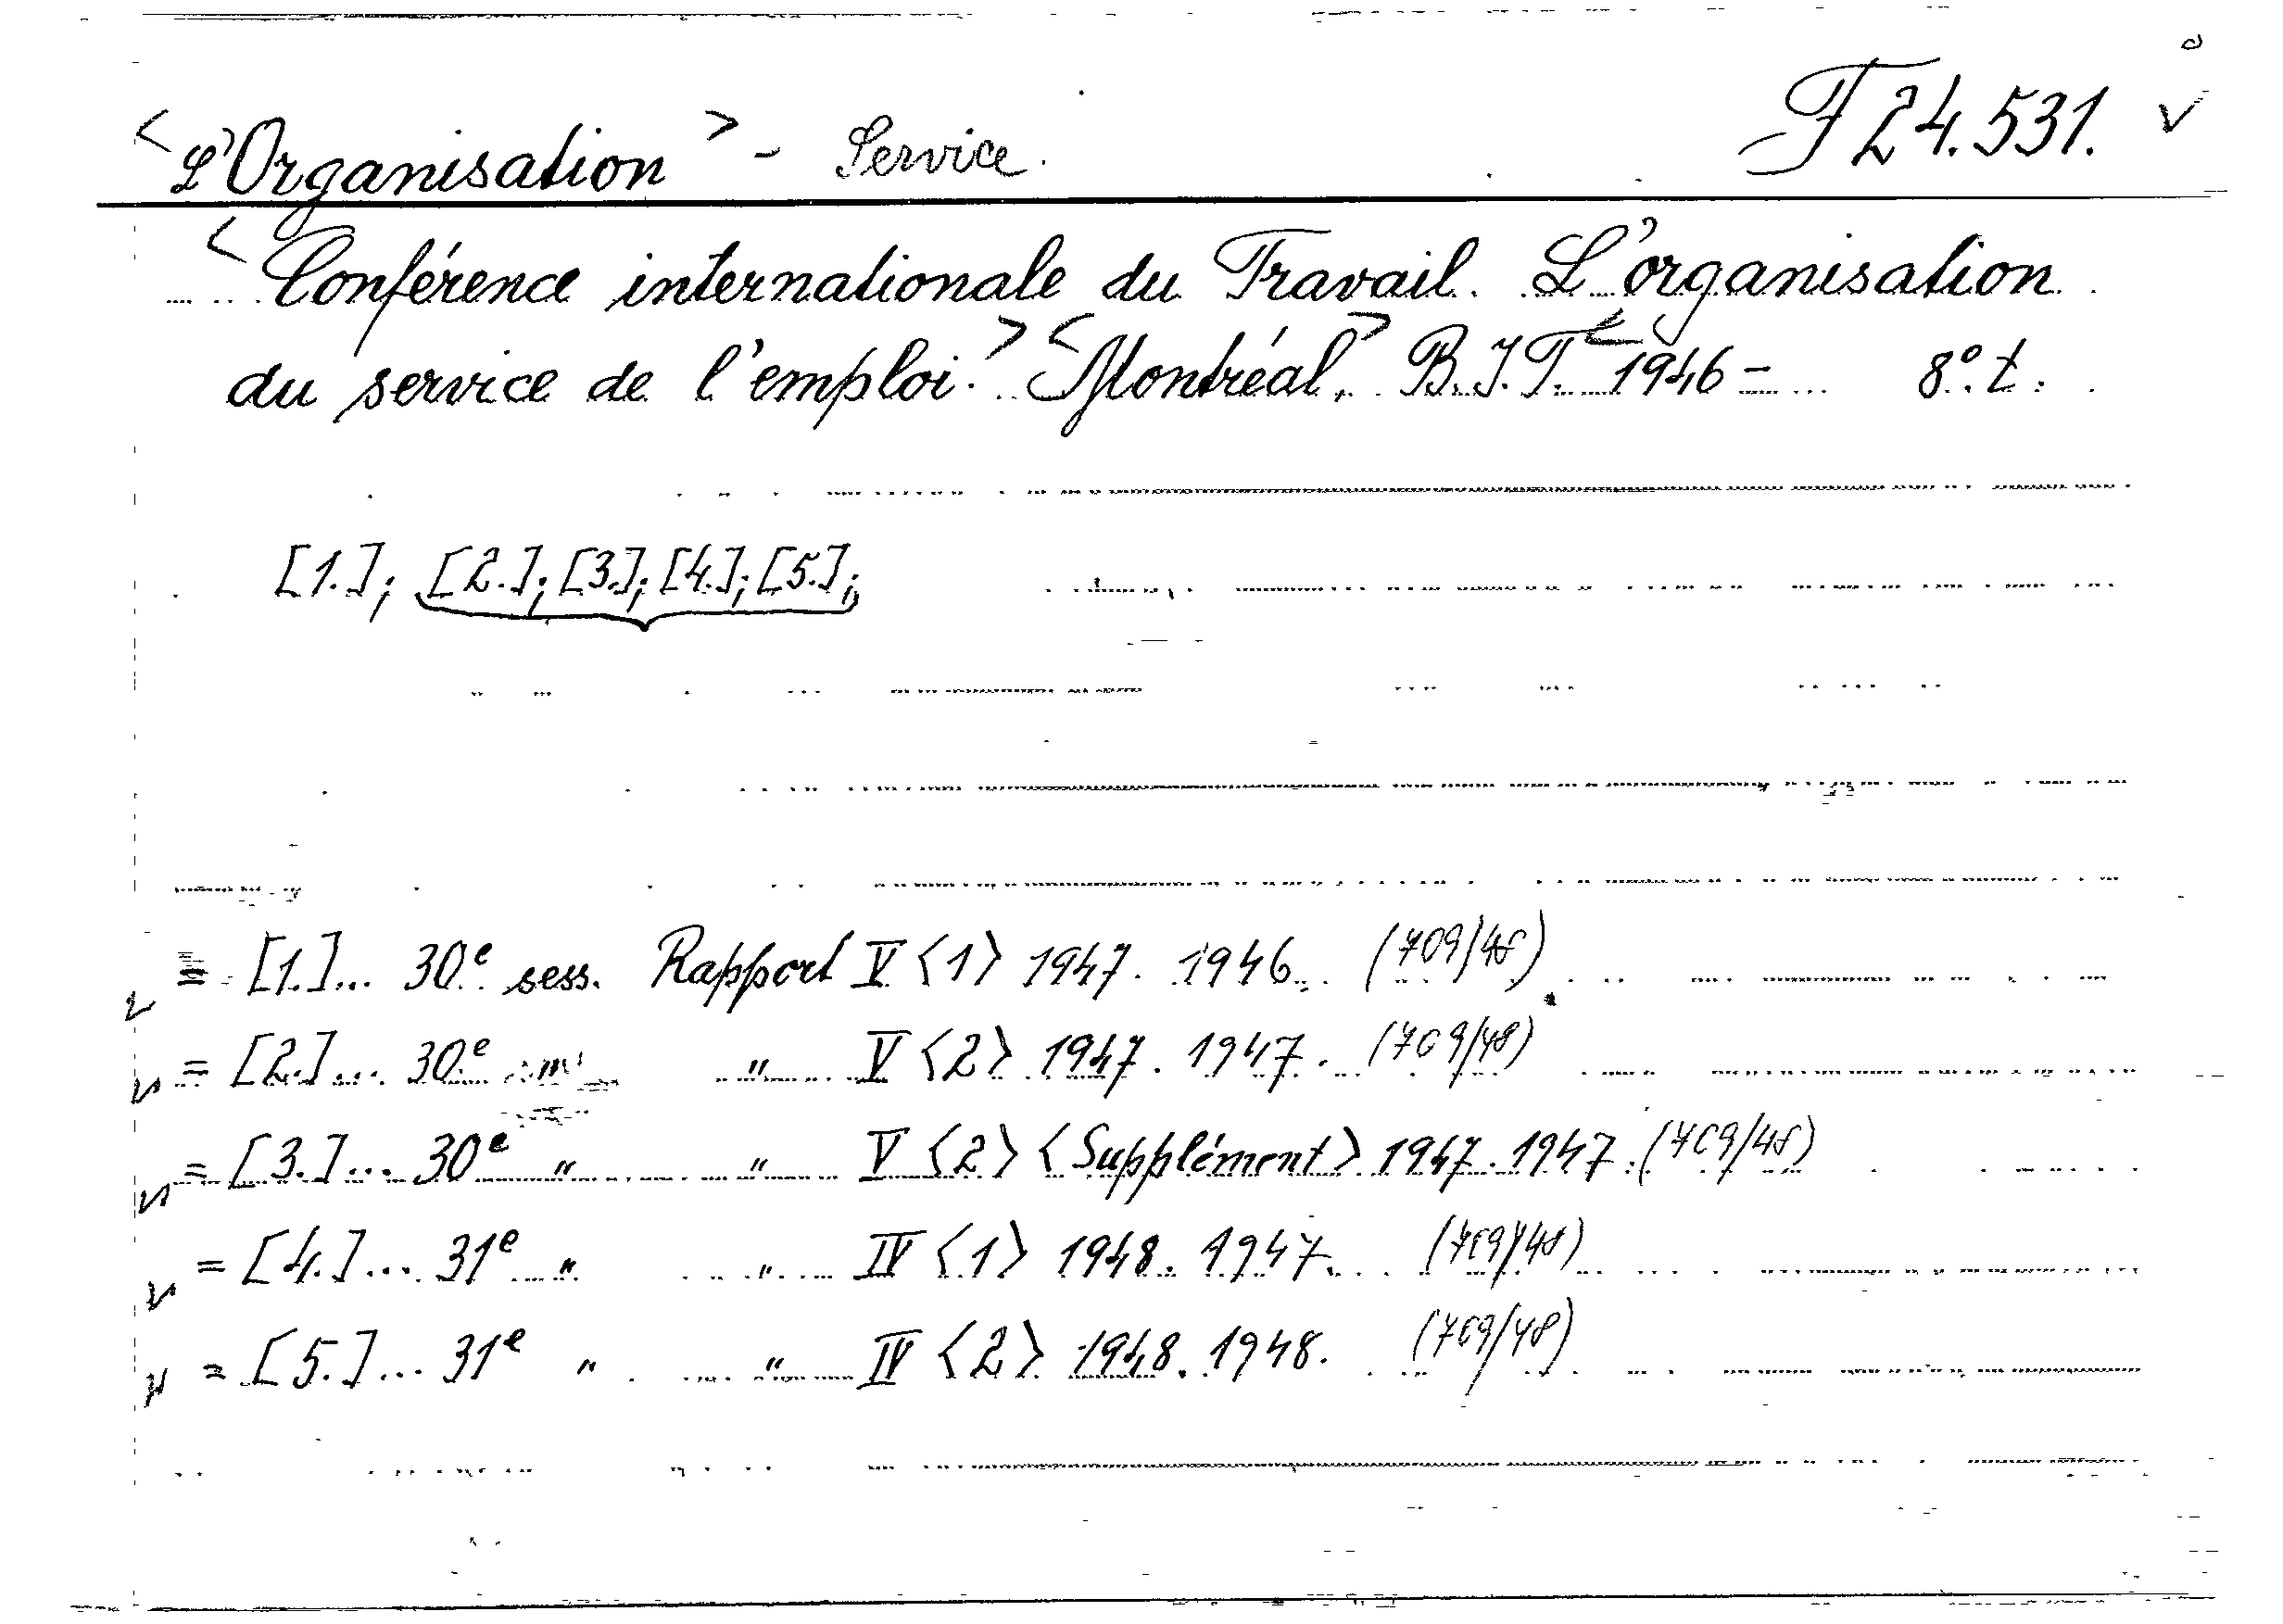 <L'Organisation> - Service. F 24.531. √
<Conférence internationale du Travail. L'organisation
du service de l'emploi.> <Montréal,> B.I.T. 1946 - 8°. t.
[1.]; [2.]; [3.]; [4.]; [5.];
= [1.]... 30.e sess. Rapport V <1> 1947. 1946. (709/48)
= [2.]... 30.e " V <2> 1947. 1947. (709/48)
= [3.]... 30e " " V <2> <Supplément> 1947. 1947. (709/48)
= [4.]... 31e " " IV <1> 1948. 1947. (709/48)
= [5.]... 31e " " IV <2> 1948. 1948. (709/48)